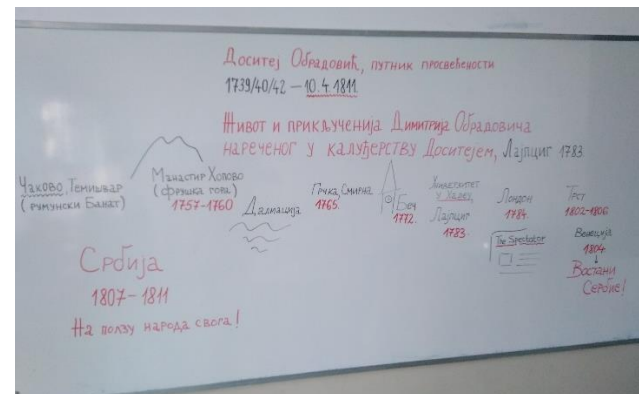 Доситеј Обрадовић, путник просвећености
1739/40/42 — 10.4.1811.
Живот и прикљученија Димитрија Обрадовича
нареченог у калуђерству Доситејем, Лајпциг 1783.
Чаково, Темишвар
(румунски Банат)
Манастир Хопово
(Фрушка гора)
1757-1760
Далмација
Грчка, Смирна
1765.
Беч
1772.
Универзитет
у Халеу
Лајпциг
1783.
Лондон
1784.
The Spectator
Трст
1802-1806
Венеција
1804.
↓
Востани
Сербие!
Србија
1807-1811
На ползу народа свога!